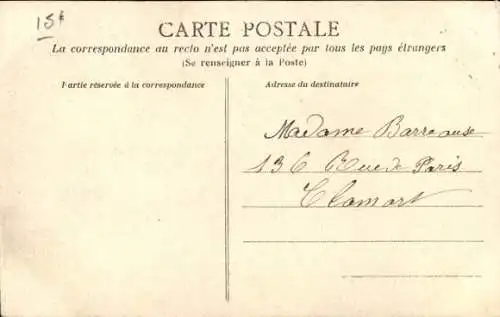 15f
CARTE POSTALE
La correspondance au recto n'est pas acceptée par tous les pays étrangers
(Se renseigner à la Poste)
Partie réservée à la correspondance
Adresse du destinataire
Madame Barreause
136 Rue de Paris
Clamart